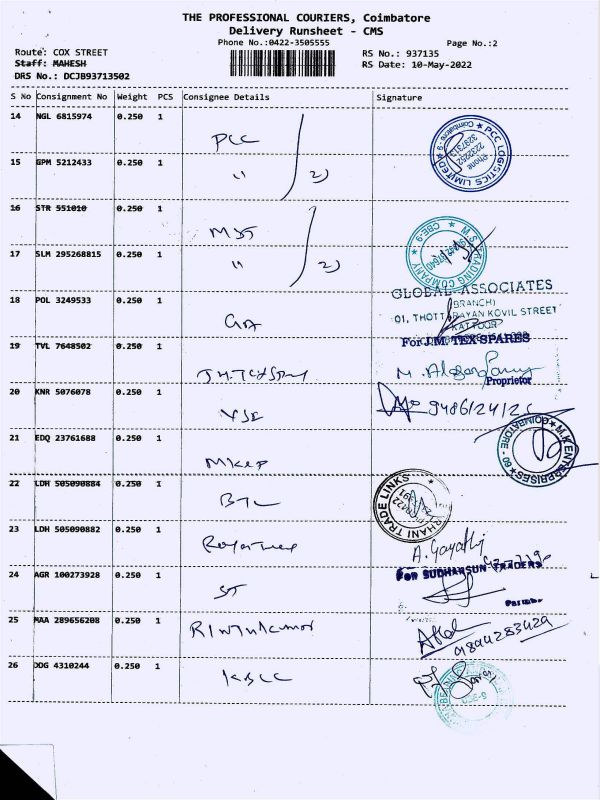 THE PROFESSIONAL COURIERS, Coimbatore
Delivery Runsheet - CMS
Phone No.:0422-3505555
Page No.:2
Route: COX STREET
RS No.: 937135
Staff: MAHESH
RS Date: 10-May-2022
DRS No.: DCJB93713502
S No Consignment No Weight PCS Consignee Details Signature
14 NGL 6815974 0.250 1 PCC
PCC LOGISTICS LIMITED ★ Coimbatore - 9 ★
Phone
2232252
15 GPM 5212433 0.250 1 " 2)
16 STR 551010 0.250 1 MJS
M.S. TRADING COMPANY ★ CBE-9 ★
17 SLM 295268815 0.250 1 " 2)
18 POL 3249533 0.250 1 GA
GLOBAL ASSOCIATES
(BRANCH)
KOVIL STREET
KATTOOR
19 TVL 7648502 0.250 1 J.M. Tex Spares
For J.M. TEX SPARES
Proprietor
20 KNR 5076078 0.250 1
21 EDQ 23761688 0.250 1
M.K ENTERPRISES ★ COIMBATORE
22 LDH 505090884 0.250 1 BTL
TRADE LINKS
23 LDH 505090882 0.250 1
A. Gayathri
24 AGR 100273928 0.250 1 ST
For SUDHARSUN TRADERS
25 MAA 289656208 0.250 1
26 DDG 4310244 0.250 1 KBCC